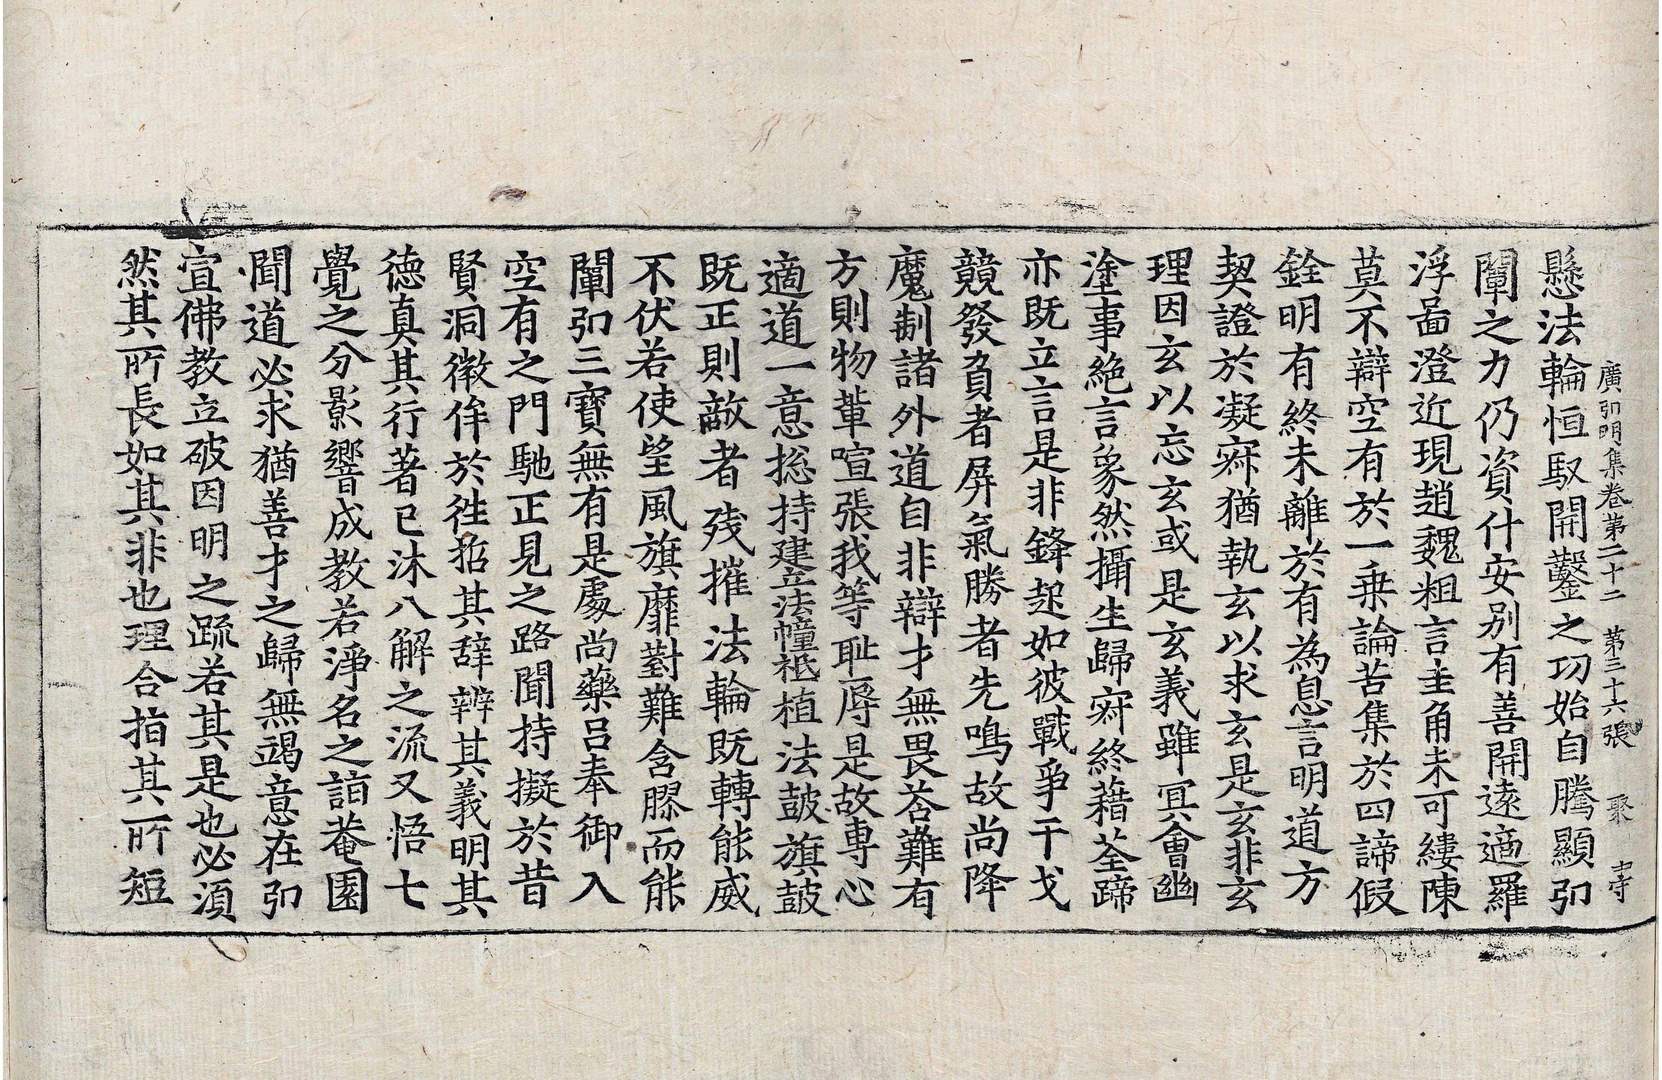 廣弘明集卷第二十二 第三十六張 聚 守
懸法輪恒馭開鑿之功始自騰顯弘
闡之力仍資什安別有善開遠適羅
浮啚澄近現趙魏粗言圭角未可縷陳
莫不辯空有於一乘論苦集於四諦假
銓明有終未離於有為息言明道方
契證於凝寂猶執玄以求玄是玄非玄
理因玄以忘玄或是玄義雖冥會幽
塗事絶言象然攝生歸寂終藉荃蹄
亦既立言是非鋒起如彼戰爭干戈
競發負者屏氣勝者先鳴故尚降
魔制諸外道自非辯才無畏荅難有
方則物輩喧張我等恥辱是故專心
適道一意捴持建立法幢祗植法鼓旗鼓
既正則敵者殘摧法輪既轉能威
不伏若使望風旗靡對難含膠而能
闡弘三寶無有是處尚藥吕奉御入
空有之門馳正見之路聞持擬於昔
賢洞徵侔於徃招其辞辨其義明其
德真其行著已沐八解之流又悟七
覺之分影響成教若淨名之詣菴園
聞道必求猶善才之歸無竭意在弘
宣佛教立破因明之䟽若其是也必須
然其所長如其非也理合指其所短